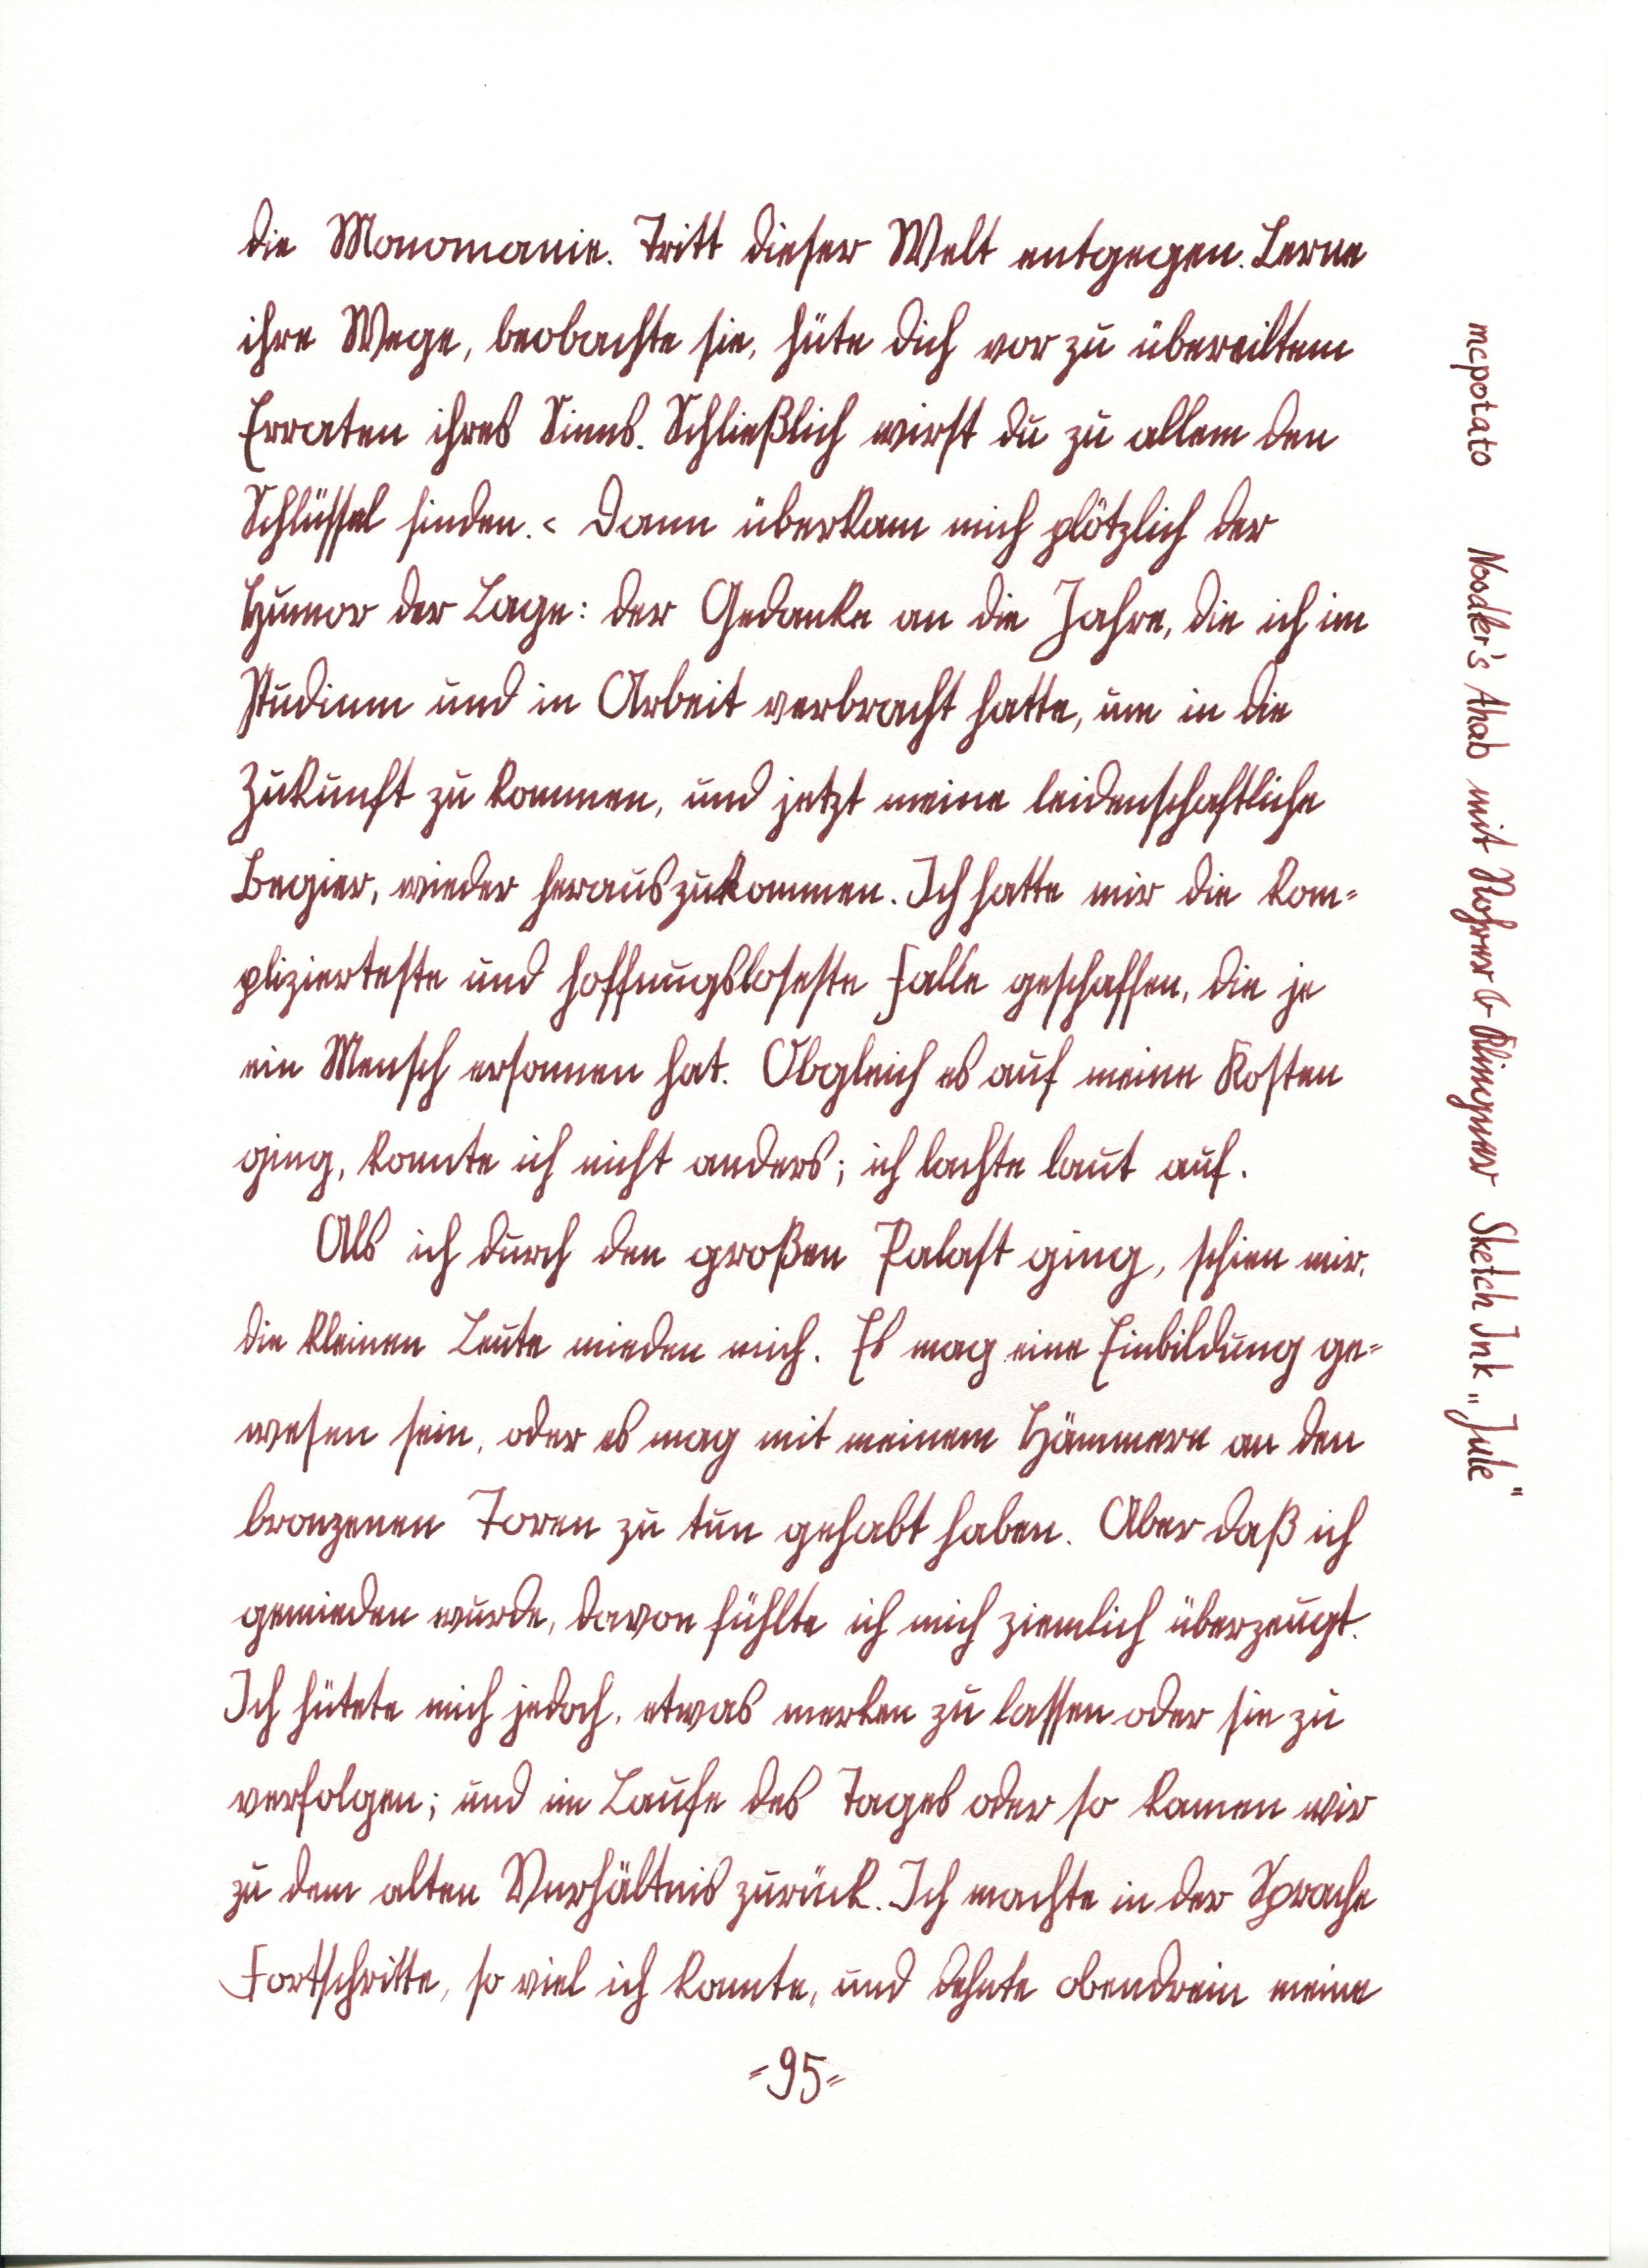 die Monomanie. Tritt dieser Welt entgegen. Lerne
ihre Wege, beobachte sie, hüte dich vor zu übereiltem
Erraten ihres Sinns. Schließlich wirst du zu allem den
Schlüssel finden.‹ Dann überkam mich plötzlich der
Humor der Lage: der Gedanke an die Jahre, die ich im
Studium und in Arbeit verbracht hatte, um in die
Zukunft zu kommen, und jetzt meine leidenschaftliche
Begier, wieder herauszukommen. Ich hatte mir die kom=
plizierteste und hoffnungsloseste Falle geschaffen, die je
ein Mensch ersonnen hat. Obgleich es auf meine Kosten
ging, konnte ich nicht anders; ich lachte laut auf.
Als ich durch den großen Palast ging, schien mir,
die kleinen Leute mieden mich. Es mag eine Einbildung ge=
wesen sein, oder es mag mit meinem Hämmern an den
bronzenen Toren zu tun gehabt haben. Aber daß ich
gemieden wurde, davon fühlte ich mich ziemlich überzeugt.
Ich hütete mich jedoch, etwas merken zu lassen oder sie zu
verfolgen; und im Laufe des Tages oder so kamen wir
zu dem alten Verhältnis zurück. Ich machte in der Sprache
Fortschritte, so viel ich konnte, und dehnte obendrein meine
=95=
mcpotato Noodler's Ahab mit Rohrer & Klingner Sketch Ink „Jule"